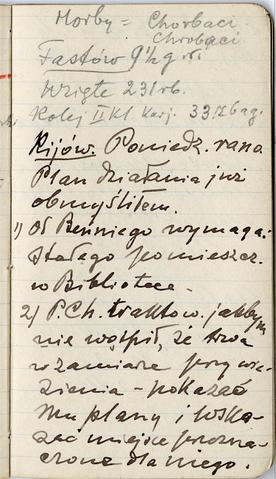 Horby = Chorbaci
Chrobaci
Fastów 9½ g
Wzięte 231 rb.
Kolej II Kl. 33
Kijów. Poniedz. rano
Plan działania już
obmyśliłem.
1) Od Beńniego wymagać
stałego pomieszcz.
w Bibliotece.
2) P. Ch. traktow. jakbym
nie wątpił, że trwa
w zamiarze przywie-
zienia – pokazać
mu plany i wska-
zać miejsce przezna-
czone dla niego.